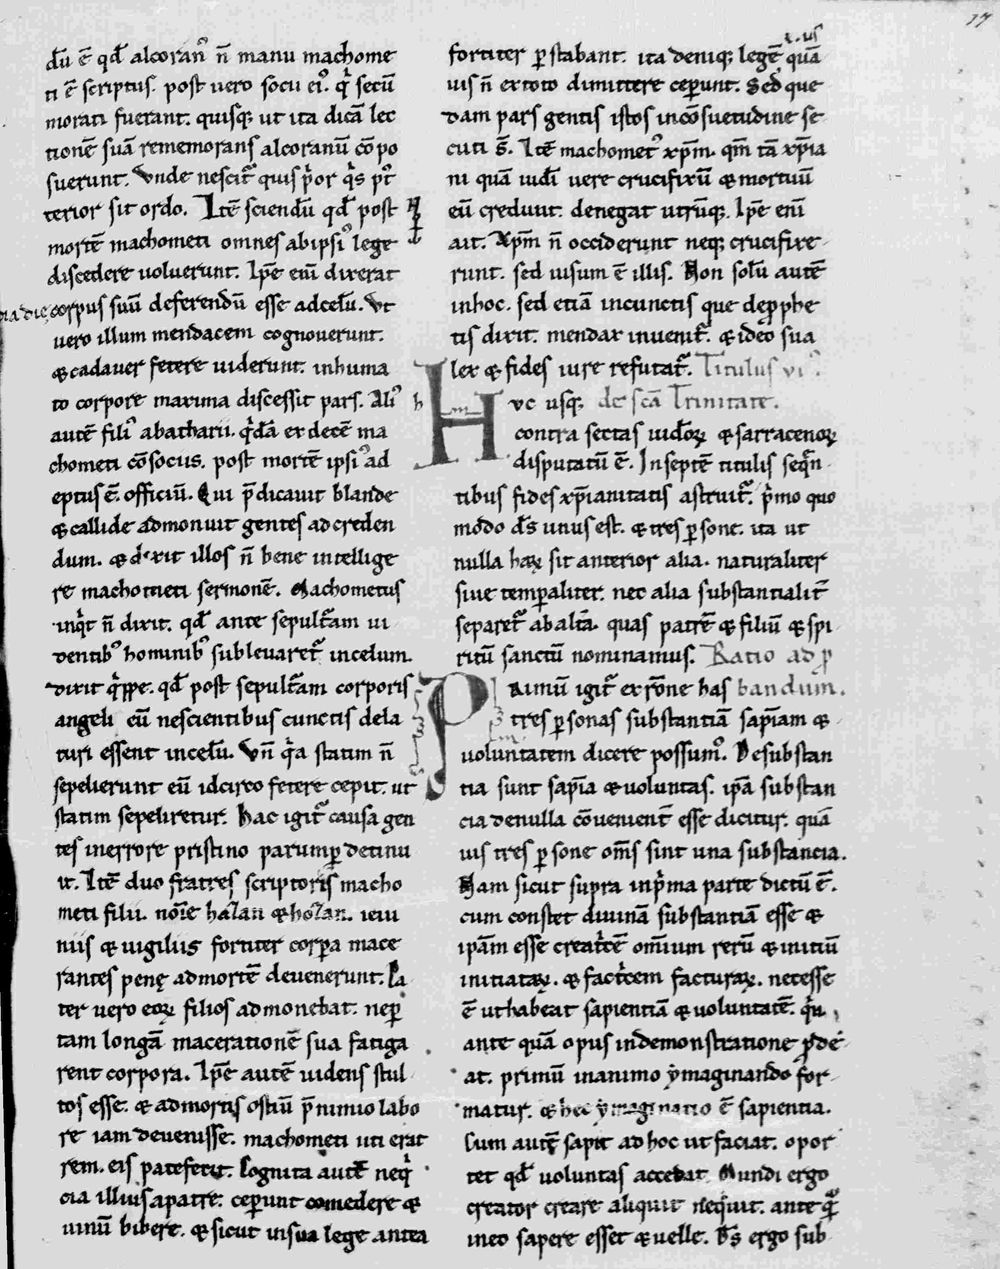 17
dū ē qd̄ alcoran᷒ n̄ manu machome
ti ē scriptus. post uero socii ei᷒. q̇ secū
morati fuerant. quisq; ut ita dicā lec
tionē suā rememorans alcoranū cōpo
suerunt. Vnde nescit᷑ quis ṗor q̇s pt᷑
terior sit ordo. Itē sciendū qd̄ post
mortē machometi omnes ab ipsi᷒ lege
discedere uoluerunt. Ip̄e eni᷑ dixerat
corpus suū deferendū esse ad celū. Vt
uero illum mendacem cognouerunt.
& cadauer fetere uiderunt. inhuma
to corpore maxima discessit pars. Ali᷒
autē fili᷒ abatharii. q̇dā ex decē ma
chometi cōsocus. post mortē ipsi᷒ ad
eptus ē officiū. Qui p̄dicauit blande
& callide admonuit gentes ad creden
dum. & dixit illos n̄ bene intellige
re machometi sermonē. Machometus
inq̇t n̄ dixit. qd̄ ante sepult᷑am ui
uentib᷒ hominib᷒ subleuaret᷑ in celum.
dixit q̇ppe. qd̄ post sepult᷑am corporis
angeli eū nescientibus cunctis dela
turi essent in celū. Vn̄ q̇a statim n̄
sepelierunt eū idcirco fetere cepit. ut
statim sepeliretur. Hac igit᷑ causa gen
tes in errore pristino parump̱ detinu
it. Itē duo fratres scriptoris macho
meti filii. noīe halan & holan. ieiu
niis & uigiliis fortiter corpa mace
rantes penę ad mortē deuenerunt. Pa
ter uero eoꝝ filios admonebat. ne p̱
tam longā maceratione sua fatiga
rent corpora. Ip̄e autē uidens stul
tos esse. & ad mortis ostiū p̄nimio labo
re iam deuenisse. machometi uti erat
rem. eis patefecit. Cognita autē neq̇
cia illius a patre. ceperunt comedere &
uinū bibere. & sicut in sua lege antea
fortiter p̱stabant. ita deniq; legē quā
uis n̄ ex toto dimittere ceperunt. Sed que
dam pars gentis istos in cōsuetudine se
cuti s̄. Itē machomet᷒ xp̄m. qm̄ tā xp̄ia
ni quā iudi uere crucifixū & mortuū
eū credunt. denegat utrūq;. Ip̄e eni᷑
ait. Xp̄m n̄ occiderunt neq; crucifixe
runt. sed uisum ē illis. Non solū autē
in hoc. sed etiā in cunctis que de p̱phe
tis dixit. mendax inuenit᷑. & ideo sua
lex & fides iure refutat᷑. Titulus vi᷒.
Huc usq; de scā Trinitate.
contra sectas iudeoꝝ & sarracenoꝝ
disputatū ē. In septē titulis seq̄n
tibus fides xp̄ianitatis astruit᷑. ṗmo quo
modo d̄s unus est. & tres p̱sone. ita ut
nulla haꝝ sit anterior alia. naturaliter
siue tempaliter. nec alia substantialit᷑
separet᷑ ab alt᷑a. quas patrē & filiū & spi
ritū sanctū nominamus. Ratio ad p̱
Primū igit᷑ ex rōne has bandum.
tres p̱sonas substantiā sapīam &
uoluntatem dicere possum᷒. De substan
tia sunt sapīa & uoluntas. ipā substan
cia de nulla cōuenient᷑ esse dicitur. quā
uis tres p̱sone om̄s sint una substancia.
Nam sicut supra in ṗma parte dictū ē.
cum constet diuinā substantiā esse &
ipam esse creat᷑cē omnium rerū & initiū
initiataꝝ. & fact᷑cem facturaꝝ. necesse
ē ut habeat sapientiā & uoluntatē. q̇n
ante quā opus in demonstratione p̱de
at. primū in animo ymaginando for
matur. & hec ymaginatio ē sapientia.
Cum autē sapit ad hoc ut faciat. opor
tet qd̄ uoluntas accedat. Mundi ergo
creator creare aliquit neq̇uit. ante q̄
in eo sapere esset & uelle. D̄s ergo sub